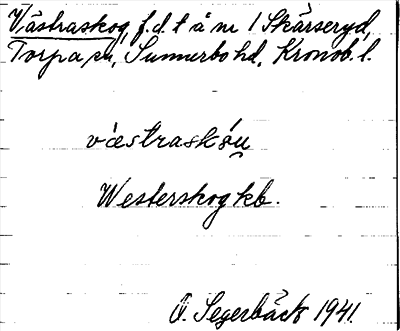 Västraskog, f.d. t å nr 1 Skärseryd,
Torpa sn, Sunnerbo hd, Kronob. l.
Westerskog kb.
O. Segerbäck 1941.